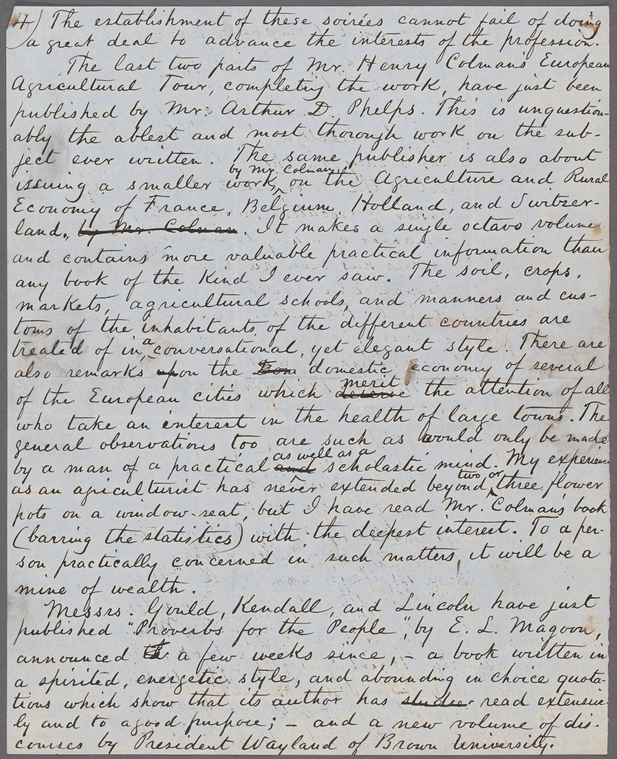 4) The establishment of these soirées cannot fail of doing
a great deal to advance the interests of the profession.
The last two parts of Mr. Henry Colman's European
Agricultural Tour, completing the work, have just been
published by Mr. Arthur D Phelps. This is unquestion-
ably the ablest and most thorough work on the sub-
ject ever written. The same publisher is also about
by Mr. Colman,
issuing a smaller work, on the Agriculture and Rural
Economy of France, Belgium, Holland, and Switzer-
land., by Mr. Colman. It makes a single octavo volume
and contains more valuable practical information than
any book of the kind I ever saw. The soil, crops,
markets, agricultural schools, and manners and cus-
toms of the inhabitants of the different countries are
treated of in a conversational, yet elegant style. There are
also remarks upon the domestic economy of several
merit
of the European cities which deserve the attention of all
who take an interest in the health of large towns. The
general observations too are such as would only be made
as well as a
by a man of a practical and scholastic mind. My experience
two, or
as an agriculturist has never extended beyond three flower
pots on a window-seat, but I have read Mr. Colman's book
(barring the statistics) with the deepest interest. To a per-
son practically concerned in such matters, it will be a
mine of wealth.
Messrs. Gould, Kendall, and Lincoln have just
published "Proverbs for the People", by E. L. Magoon,
announced a few weeks since, - a book written in
a spirited, energetic style, and abounding in choice quota-
tions which show that its author has studie read extensive-
ly and to a good purpose; - and a new volume of dis-
courses by President Wayland of Brown University.